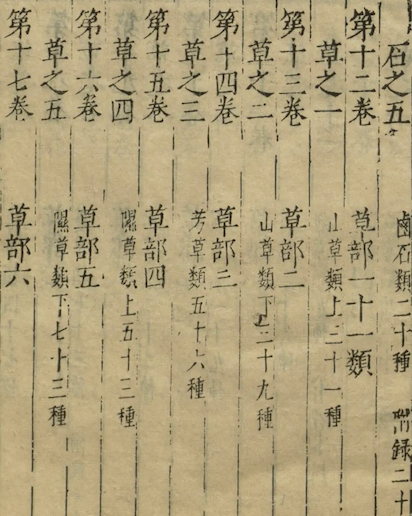 石之五 鹵石類二十種 附錄二十
第十二卷 草部一十一類
草之一 山草類上三十一種
第十三卷 草部二
草之二 山草類下三十九種
第十四卷 草部三
草之三 芳草類五十六種
第十五卷 草部四
草之四 隰草類上五十三種
第十六卷 草部五
草之五 隰草類下七十三種
第十七卷 草部六